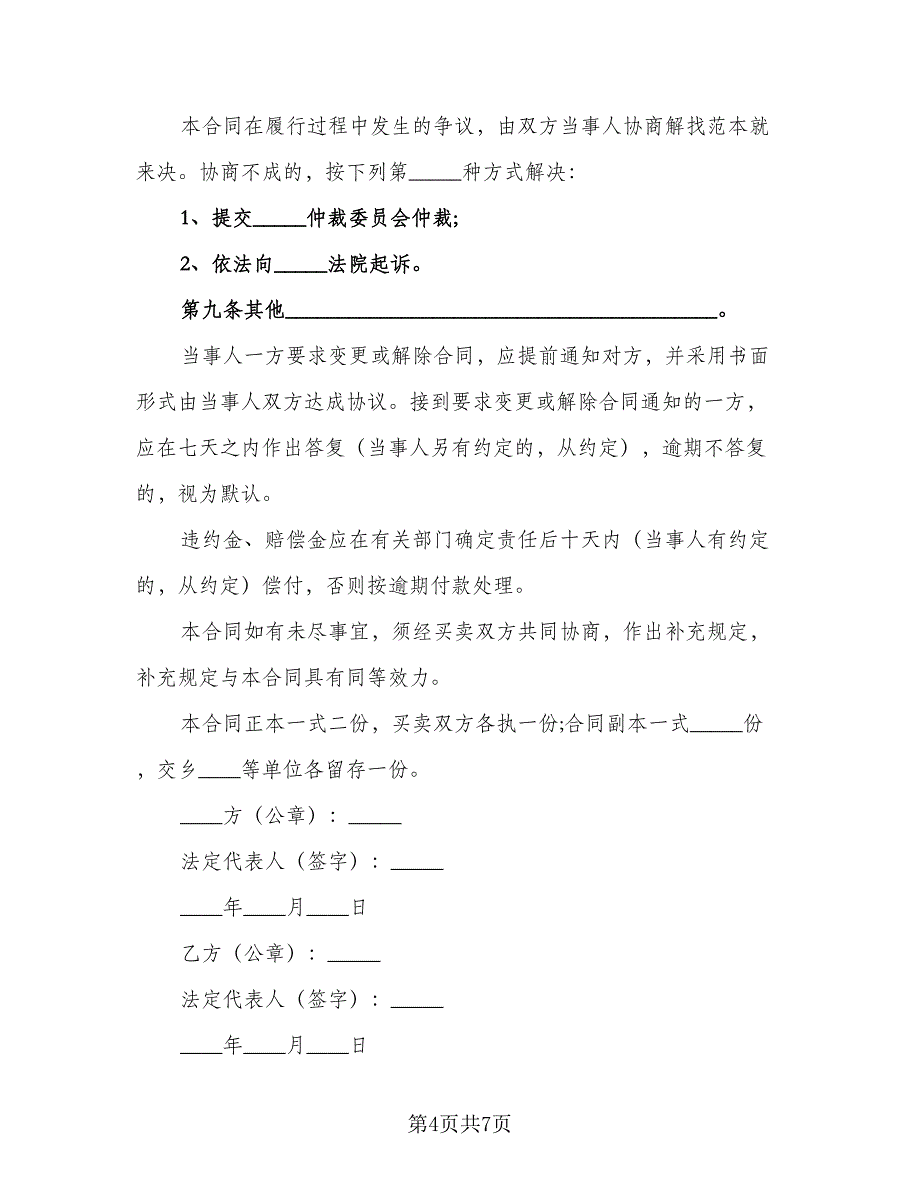 本合同在履行过程中发生的争议，由双方当事人协商解找范本就
来决。协商不成的，按下列第_____种方式解决：
1、提交_____仲裁委员会仲裁;
2、依法向_____法院起诉。
第九条其他_________________________________________。
当事人一方要求变更或解除合同，应提前通知对方，并采用书面
形式由当事人双方达成协议。接到要求变更或解除合同通知的一方，
应在七天之内作出答复（当事人另有约定的，从约定），逾期不答复
的，视为默认。
违约金、赔偿金应在有关部门确定责任后十天内（当事人有约定
的，从约定）偿付，否则按逾期付款处理。
本合同如有未尽事宜，须经买卖双方共同协商，作出补充规定，
补充规定与本合同具有同等效力。
本合同正本一式二份，买卖双方各执一份;合同副本一式_____份
，交乡____等单位各留存一份。
____方（公章）：_____
法定代表人（签字）：_____
____年____月____日
乙方（公章）：_____
法定代表人（签字）：_____
____年____月____日
第4页共7页